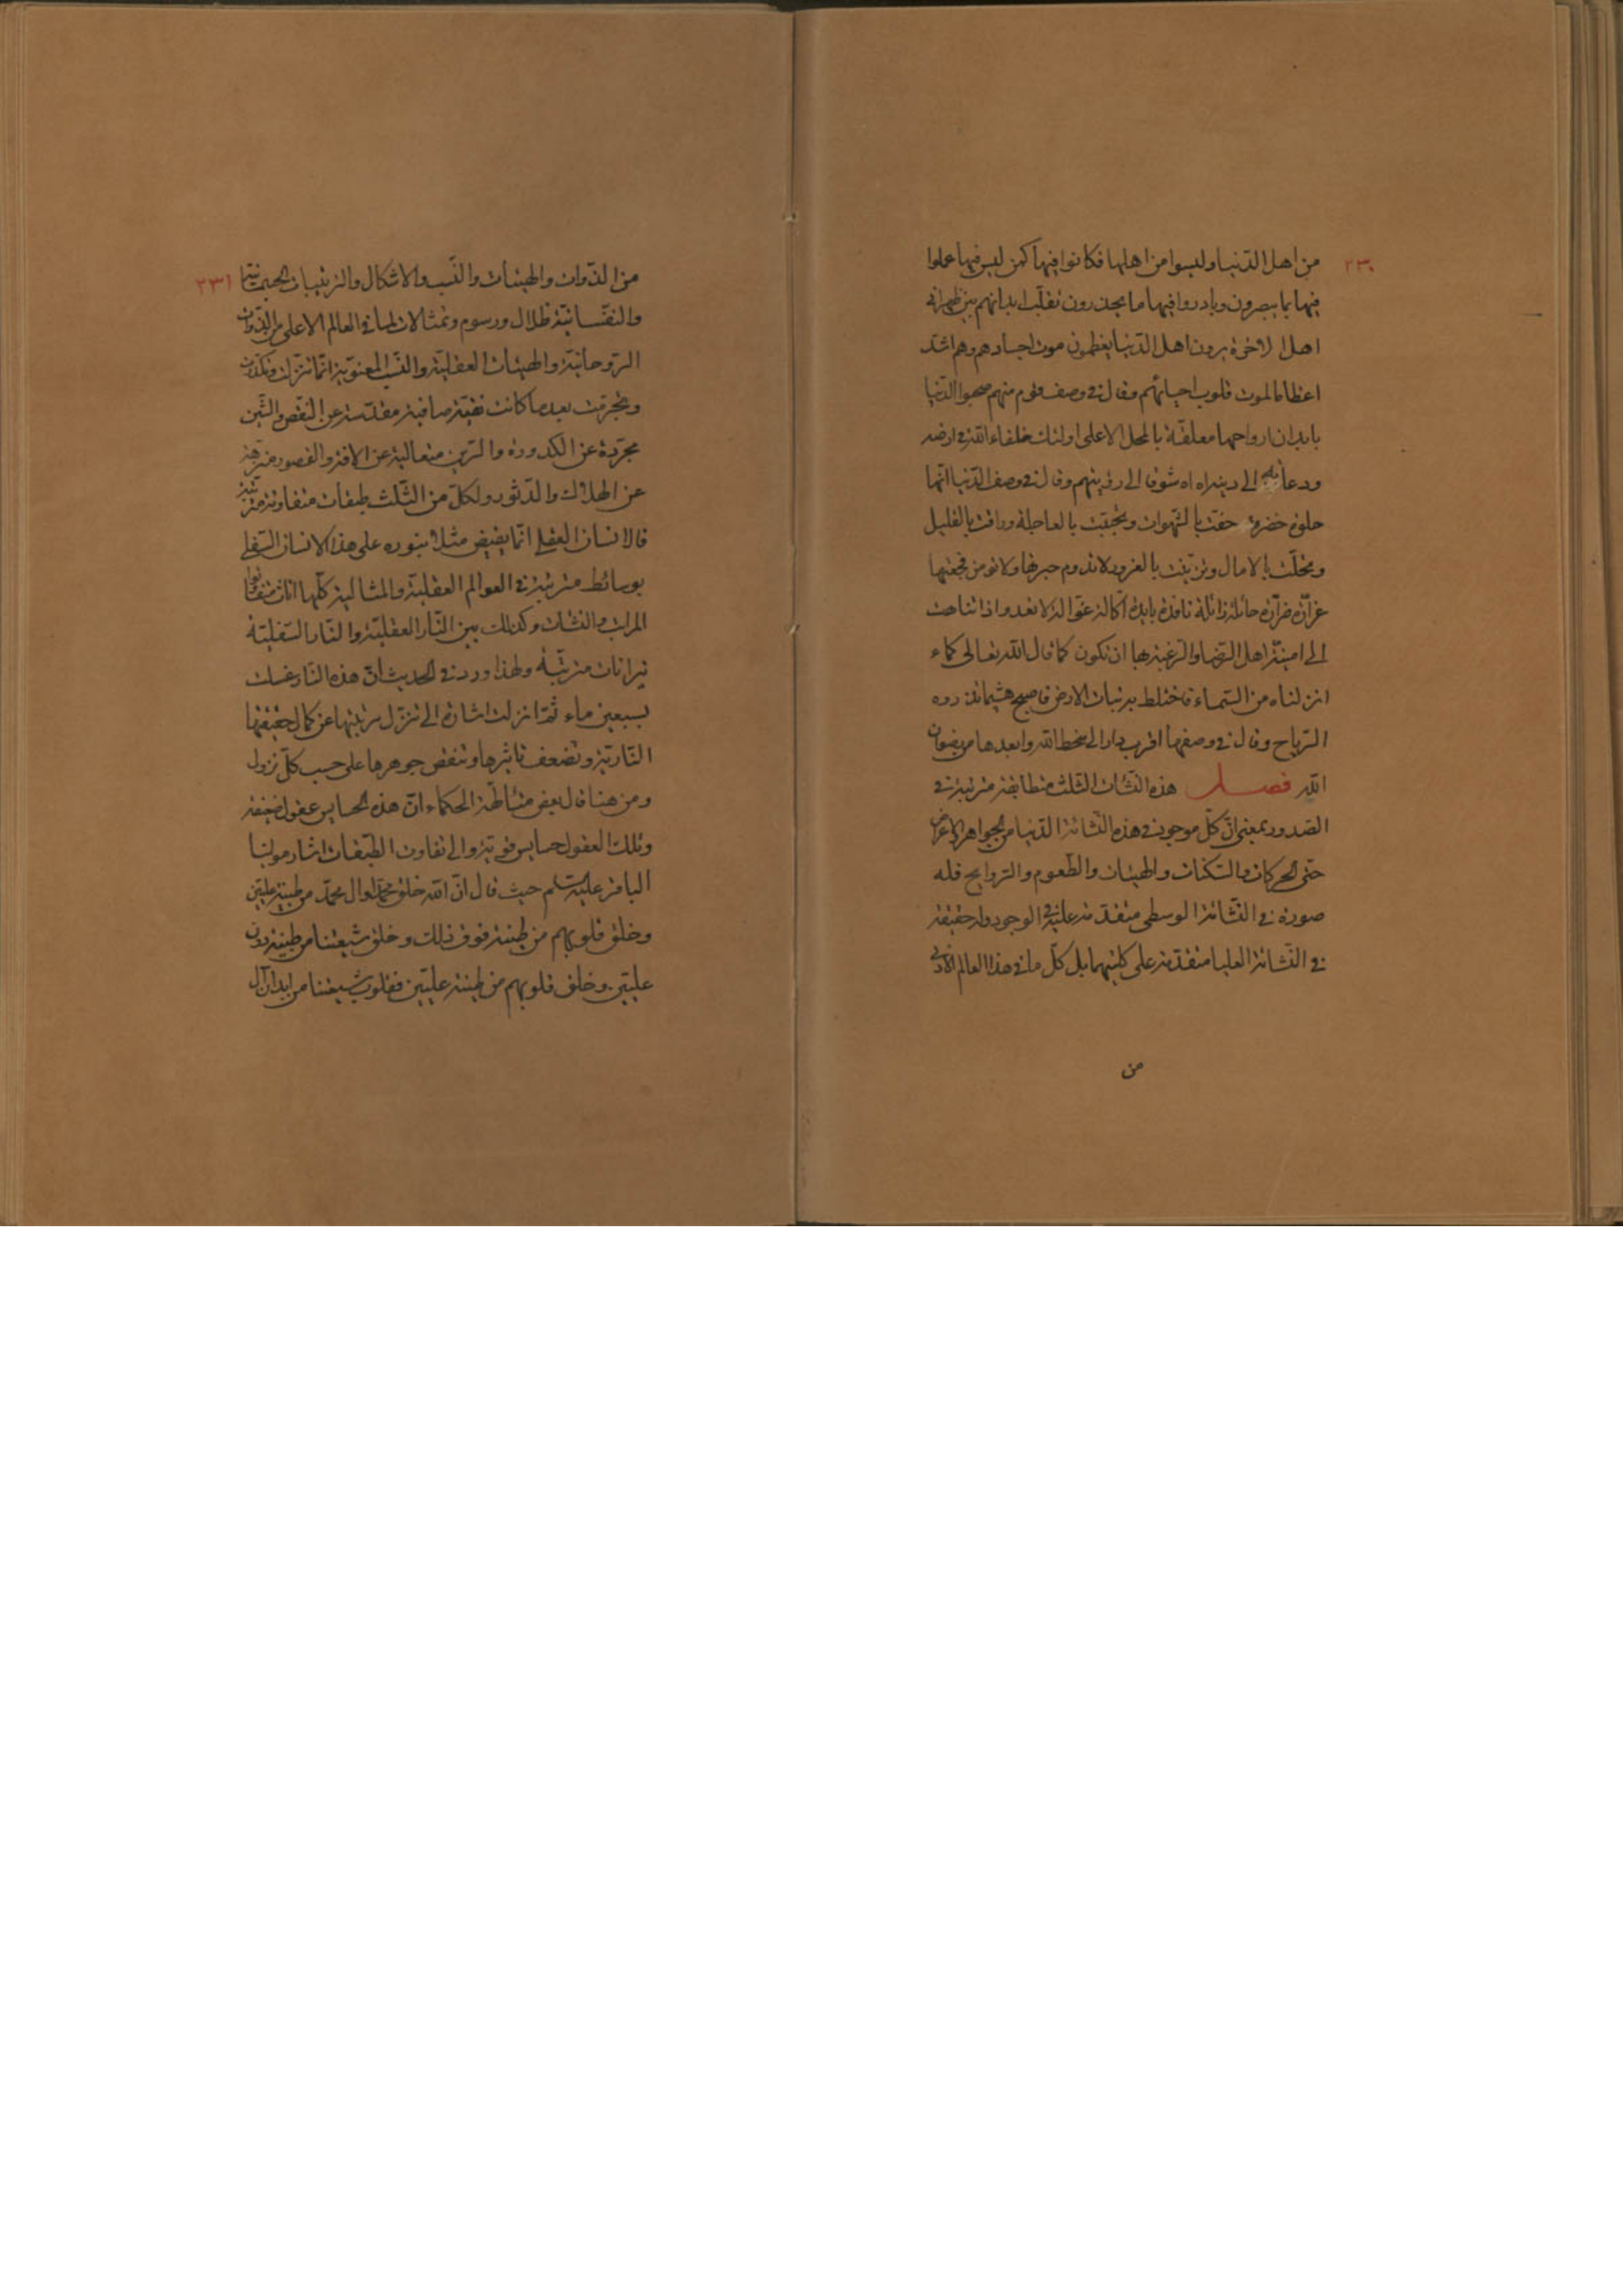 ٢٣٠
من اهل الدّنيا وليسوا من اهلها فكانوا فيها كمن ليس فيها عملوا
فيها بما يبصرون وبادروا فيها ما يحذرون تقلّب ابدانهم بين ظهراني
اهل الاخرة يرون اهل الدّنيا يعظمون موت اجسادهم وهم اشدّ
اعظاما لموت قلوب احيائهم وقال في وصف قوم منهم صحبوا الدّنيا
بابدان ارواحها معلقة بالمحل الاعلى اولئك خلفاء الله في ارضه
ودعاة الى دينه اه اه شوقا الى رؤيتهم وقال في وصف الدّنيا انّها
حلوة خضرة حفّت بالشهوات وتحببت بالعاجلة وراقت بالقليل
وتحلّت بالامال وتزيّنت بالغرور لا تدوم حبرتها ولا تؤمن فجعتها
غرّارة ضرّارة حائلة زائلة نافدة بايدة اكّالة غوّالة لا تعدو اذا تناهت
الى امنيّة اهل الرضا والرغبة بها ان تكون كما قال الله تعالى كماء
انزلناه من السّماء فاختلط به نبات الارض فاصبح هشيما تذروه
الرّياح وقال في وصفها اقرب دار الى سخط الله وابعدها من رضوان
الله فصل هذه النّشات الثلث متطابقة مترتبة في
الصّدور بمعنى انّ كلّ موجود في هذه النّشاة الدّنيا من الجواهر والاعراض
حتّى الحركات والسّكنات والهيئات والطّعوم والرّوايح فله
صورة في النّشاة الوسطى متقدّمة عليه في الوجود وله حقيقة
في النّشاة العليا متقدّمة على كليتهما بل كلّ ما في هذا العالم الادنى
من
٢٣١
من الذّوات والهيئات والنّسب والاشكال والترتيبات الجسمانيّة
والنفسانيّة ظلال ورسوم وتمثالات لما في العالم الاعلى من الذّوات
الرّوحانيّة والهيئات العقليّة والنّسب المعنويّة انّما تنزّلت وتكدّرت
وتجرمت بعد ما كانت نقيّة صافية مقدّسة عن النّقص والشّين
مجرّدة عن الكدورة والرّين متعالية عن الافة والقصور منزّهة
عن الهلاك والدّثور ولكلّ من الثّلث طبقات متفاوتة مترتّبة
فالانسان العقلي انّما يفيض بنوره على هذا الانسان السّفلي
بوسائط مترتبة في العوالم العقليّة والمثالية كلّها اناث متفاوتوا
المراتب والنشات وكذلك بين النّار العقليّة والنّار السّفليّة
نيرانات مترتّبة ولهذا ورد في الحديث انّ هذه النّار غسلت
بسبعين ماء ثمّ انزلت اشارة الى تنزّل مرتبتها عن كمال حقيقتها
النّاريّة وتضعف تاثيرها وتنقص جوهرها على حسب كلّ نزول
ومن هنا قال بعض الحكماء انّ هذه الحسايس عقول ضعيفة
وتلك العقول حسايس قويّة والى تفاوت الطّبقات اشار مولينا
الباقر عليه السلم حيث قال انّ الله خلق محمّدا وال محمّد من طينة عليّين
وخلق قلوبهم من طينة فوق ذلك وخلق شيعتنا من طينة دون
عليّين وخلق قلوبهم من طينة عليّين فقلوب شيعتنا من ابدان آل